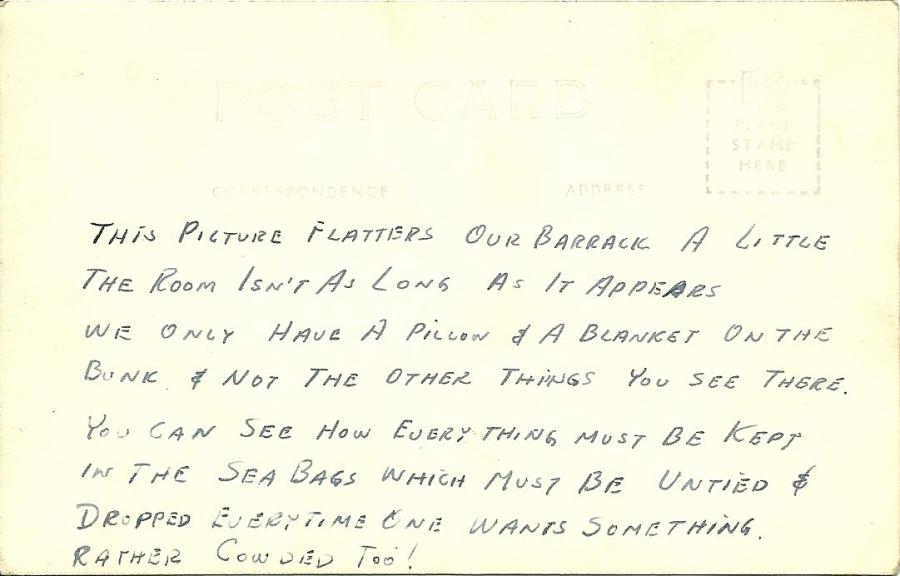 POST CARD
PLACE
STAMP
HERE
CORRESPONDENCE ADDRESS
THIS PICTURE FLATTERS OUR BARRACK A LITTLE
THE ROOM ISN'T AS LONG AS IT APPEARS
WE ONLY HAVE A PILLOW & A BLANKET ON THE
BUNK & NOT THE OTHER THINGS YOU SEE THERE.
YOU CAN SEE HOW EVERYTHING MUST BE KEPT
IN THE SEA BAGS WHICH MUST BE UNTIED &
DROPPED EVERYTIME ONE WANTS SOMETHING.
RATHER COWDED TOO!